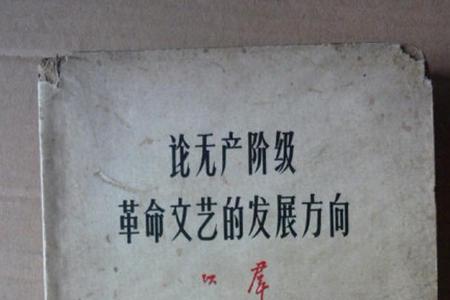 论无产阶级
革命文艺的发展方向
以群